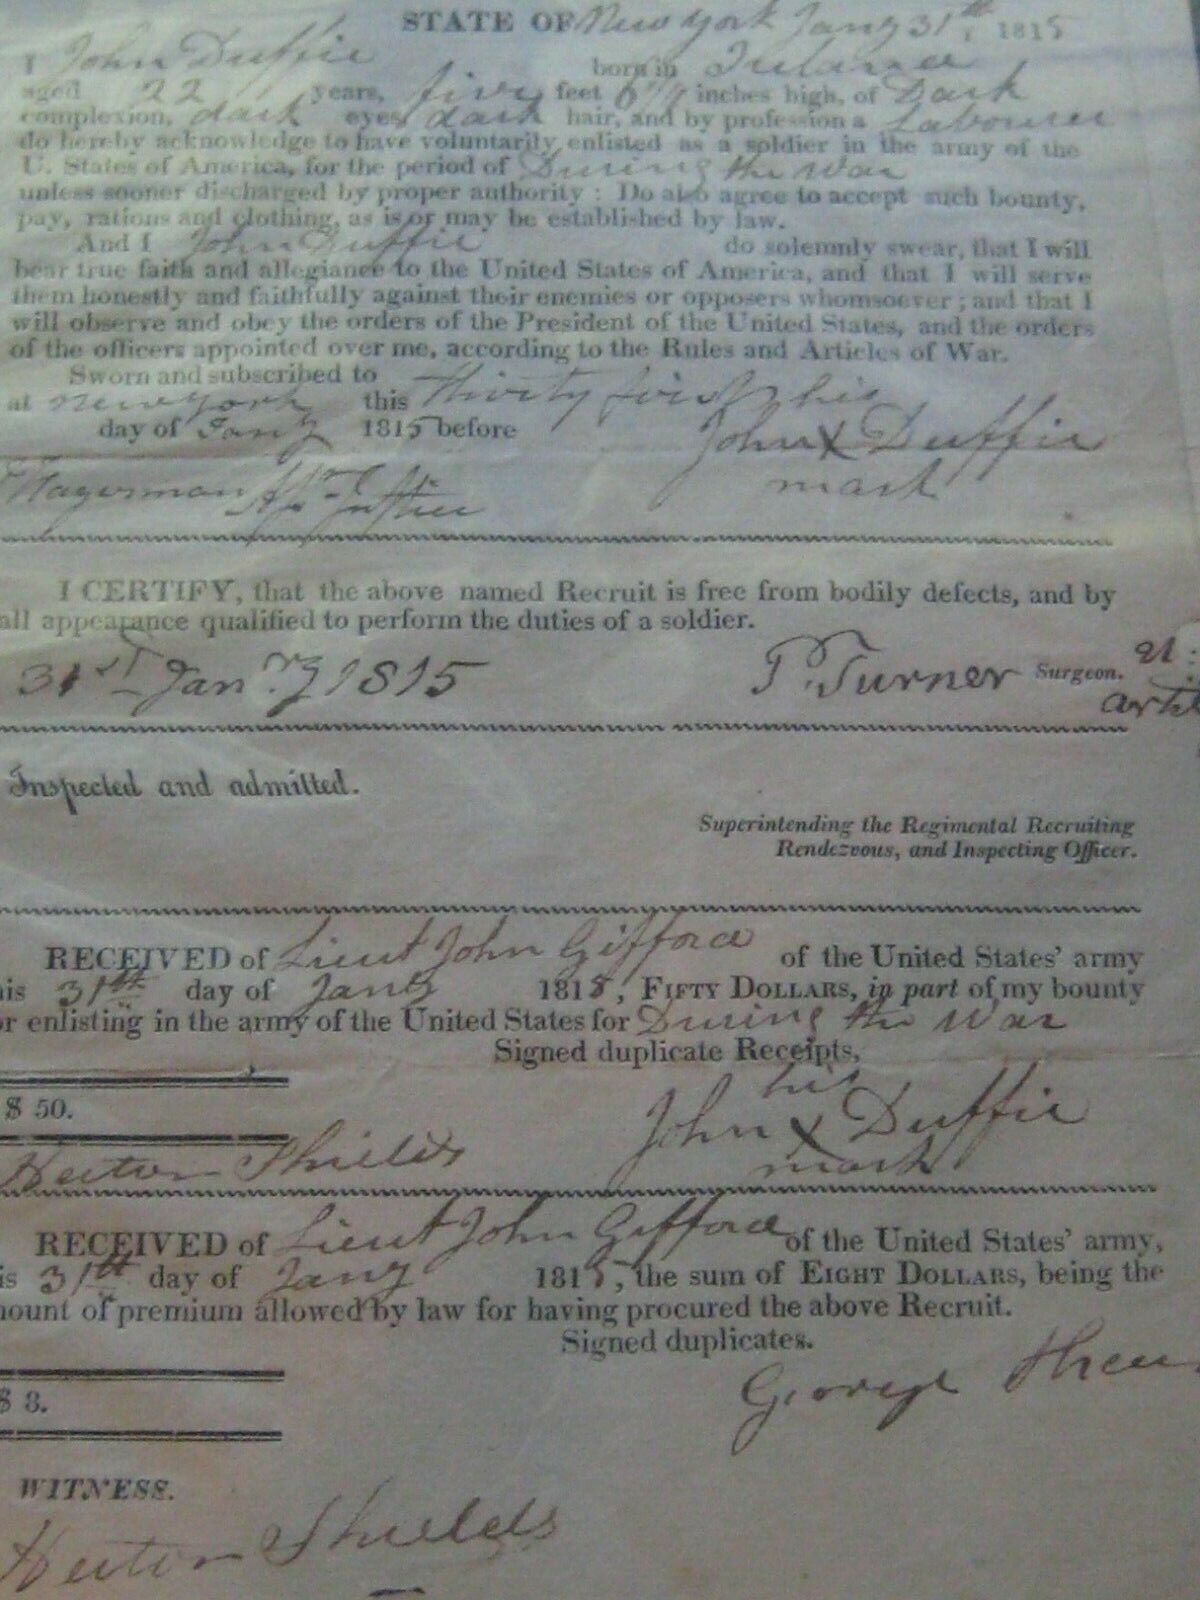 STATE OF New York Jany 31th, 1815
I John Duffie born in Ireland
aged 22 years, five feet inches high, of Dark
complexion, dark eyes, dark hair, and by profession a Labourer
do hereby acknowledge to have voluntarily enlisted as a soldier in the army of the
U. States of America, for the period of During the War
unless sooner discharged by proper authority: Do also agree to accept such bounty,
pay, rations and clothing, as is or may be established by law.
And I John Duffie do solemnly swear, that I will
bear true faith and allegiance to the United States of America, and that I will serve
them honestly and faithfully against their enemies or opposers whomsoever; and that I
will observe and obey the orders of the President of the United States, and the orders
of the officers appointed over me, according to the Rules and Articles of War.
Sworn and subscribed to
at New York this thirty first his
day of Jany 1815 before John X Duffie
Hagerman mark
I CERTIFY, that the above named Recruit is free from bodily defects, and by
all appearance qualified to perform the duties of a soldier.
31st Jany 1815 P. Turner Surgeon.
Inspected and admitted.
Superintending the Regimental Recruiting
Rendezvous, and Inspecting Officer.
RECEIVED of Lieut John Gifford of the United States' army
his 31th day of Jany 1815, FIFTY DOLLARS, in part of my bounty
or enlisting in the army of the United States for During the War
Signed duplicate Receipts,
his
$ 50. John X Duffie
Shields mark
RECEIVED of Lieut John Gifford of the United States' army,
is 31th day of Jany 1815, the sum of EIGHT DOLLARS, being the
mount of premium allowed by law for having procured the above Recruit.
Signed duplicates.
George
$ 8.
WITNESS.
Shields